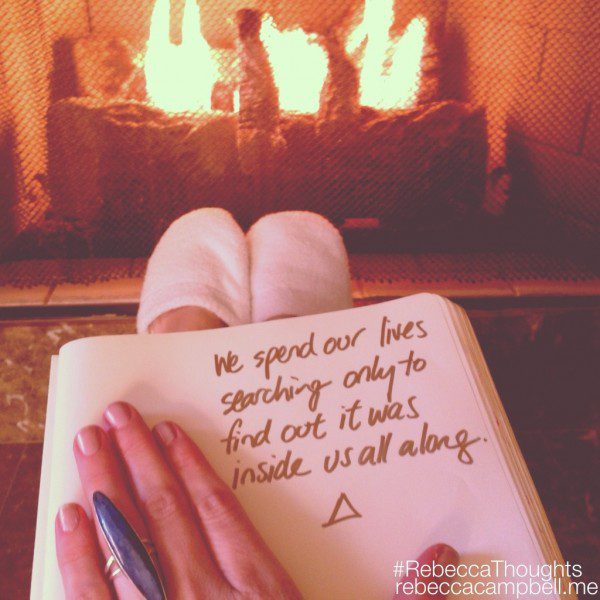 We spend our lives
searching only to
find out it was
inside us all along.
#RebeccaThoughts
rebeccacampbell.me